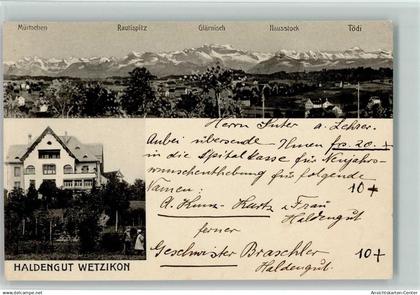 Mürtschen Rautispitz Glärnisch Hausstock Tödi
Herrn Suter a. Lehrer.
Anbei übersende Ihnen frs. 20.–
in die Spitalkasse für Neujahrs-
wunschenthebung für folgende
Namen: 10+
A. Kunz-Kurtz & Frau
Haldengut
ferner
Geschwister Braschler 10+
Haldengut.
HALDENGUT WETZIKON
© Ansichtskarten-Center